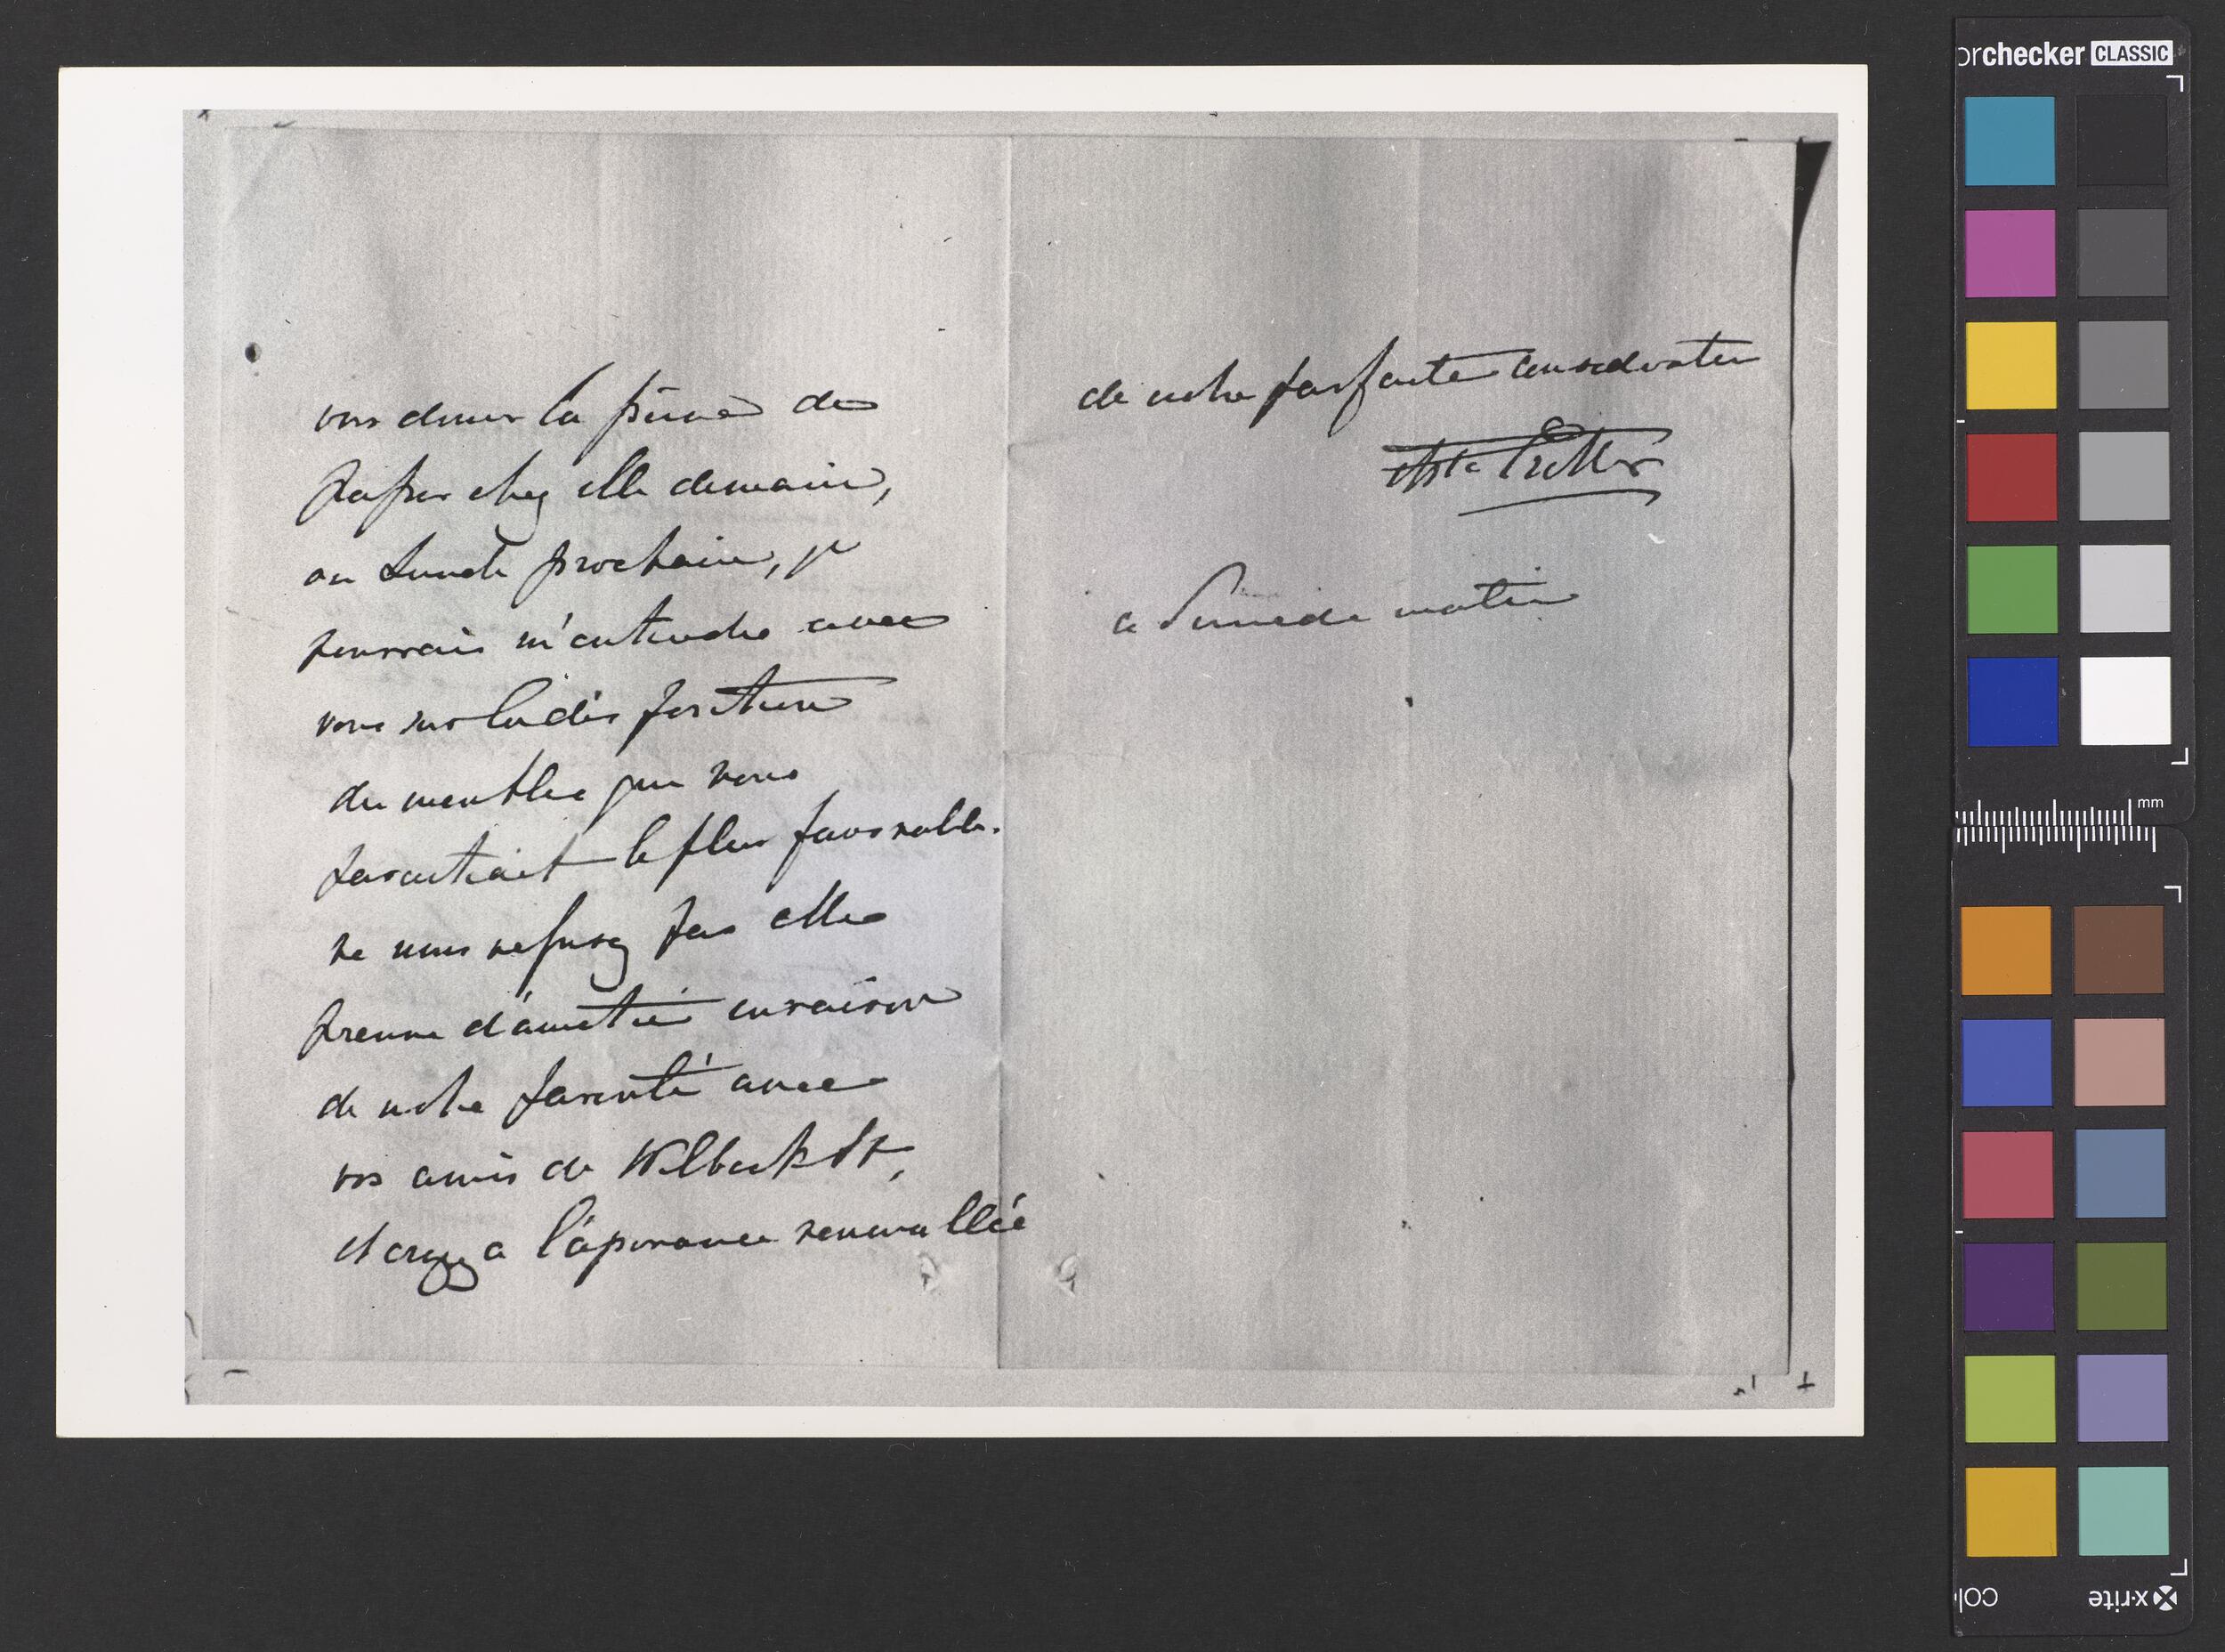 vous donner la peine de
passer chez elle demain,
ou Lundi prochain, je
pourrais m'entendre avec
vous sur la disposition
du meuble que vous
paraitrait le plus favorable.
ne nous refusez pas cette
preuve d'amitié en raison
de notre parenté avec
vos amis de
et croyez a l'assurance renouvellée
de notre parfaite consideration
a Samedi matin
orchecker CLASSIC
mm
x-rite
colo